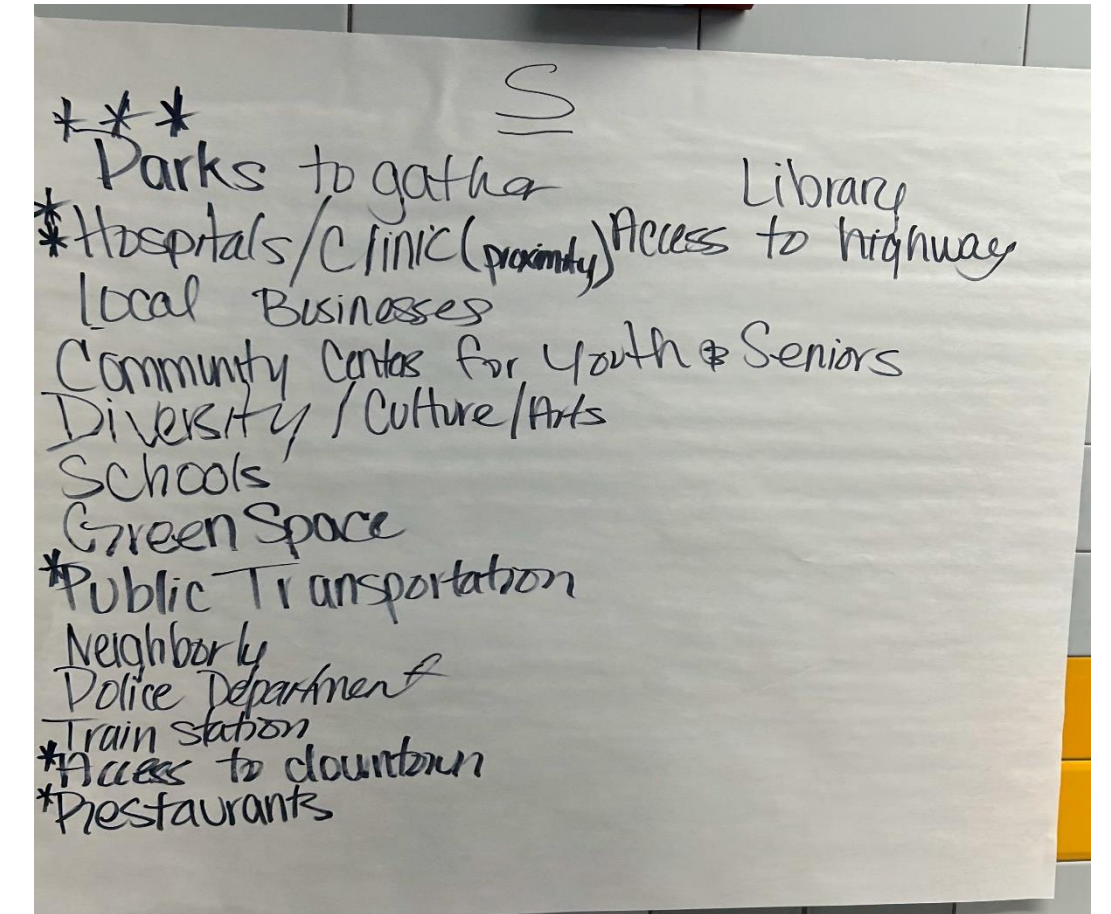 S
***
Parks to gather
Library
** Hospitals/Clinic (proximity)
Access to highway
Local Businesses
Community Centers for Youth & Seniors
Diversity / Culture/Arts
Schools
Green Space
*Public Transportation
Neighborly
Police Department
Train station
*Access to downtown
*Restaurants